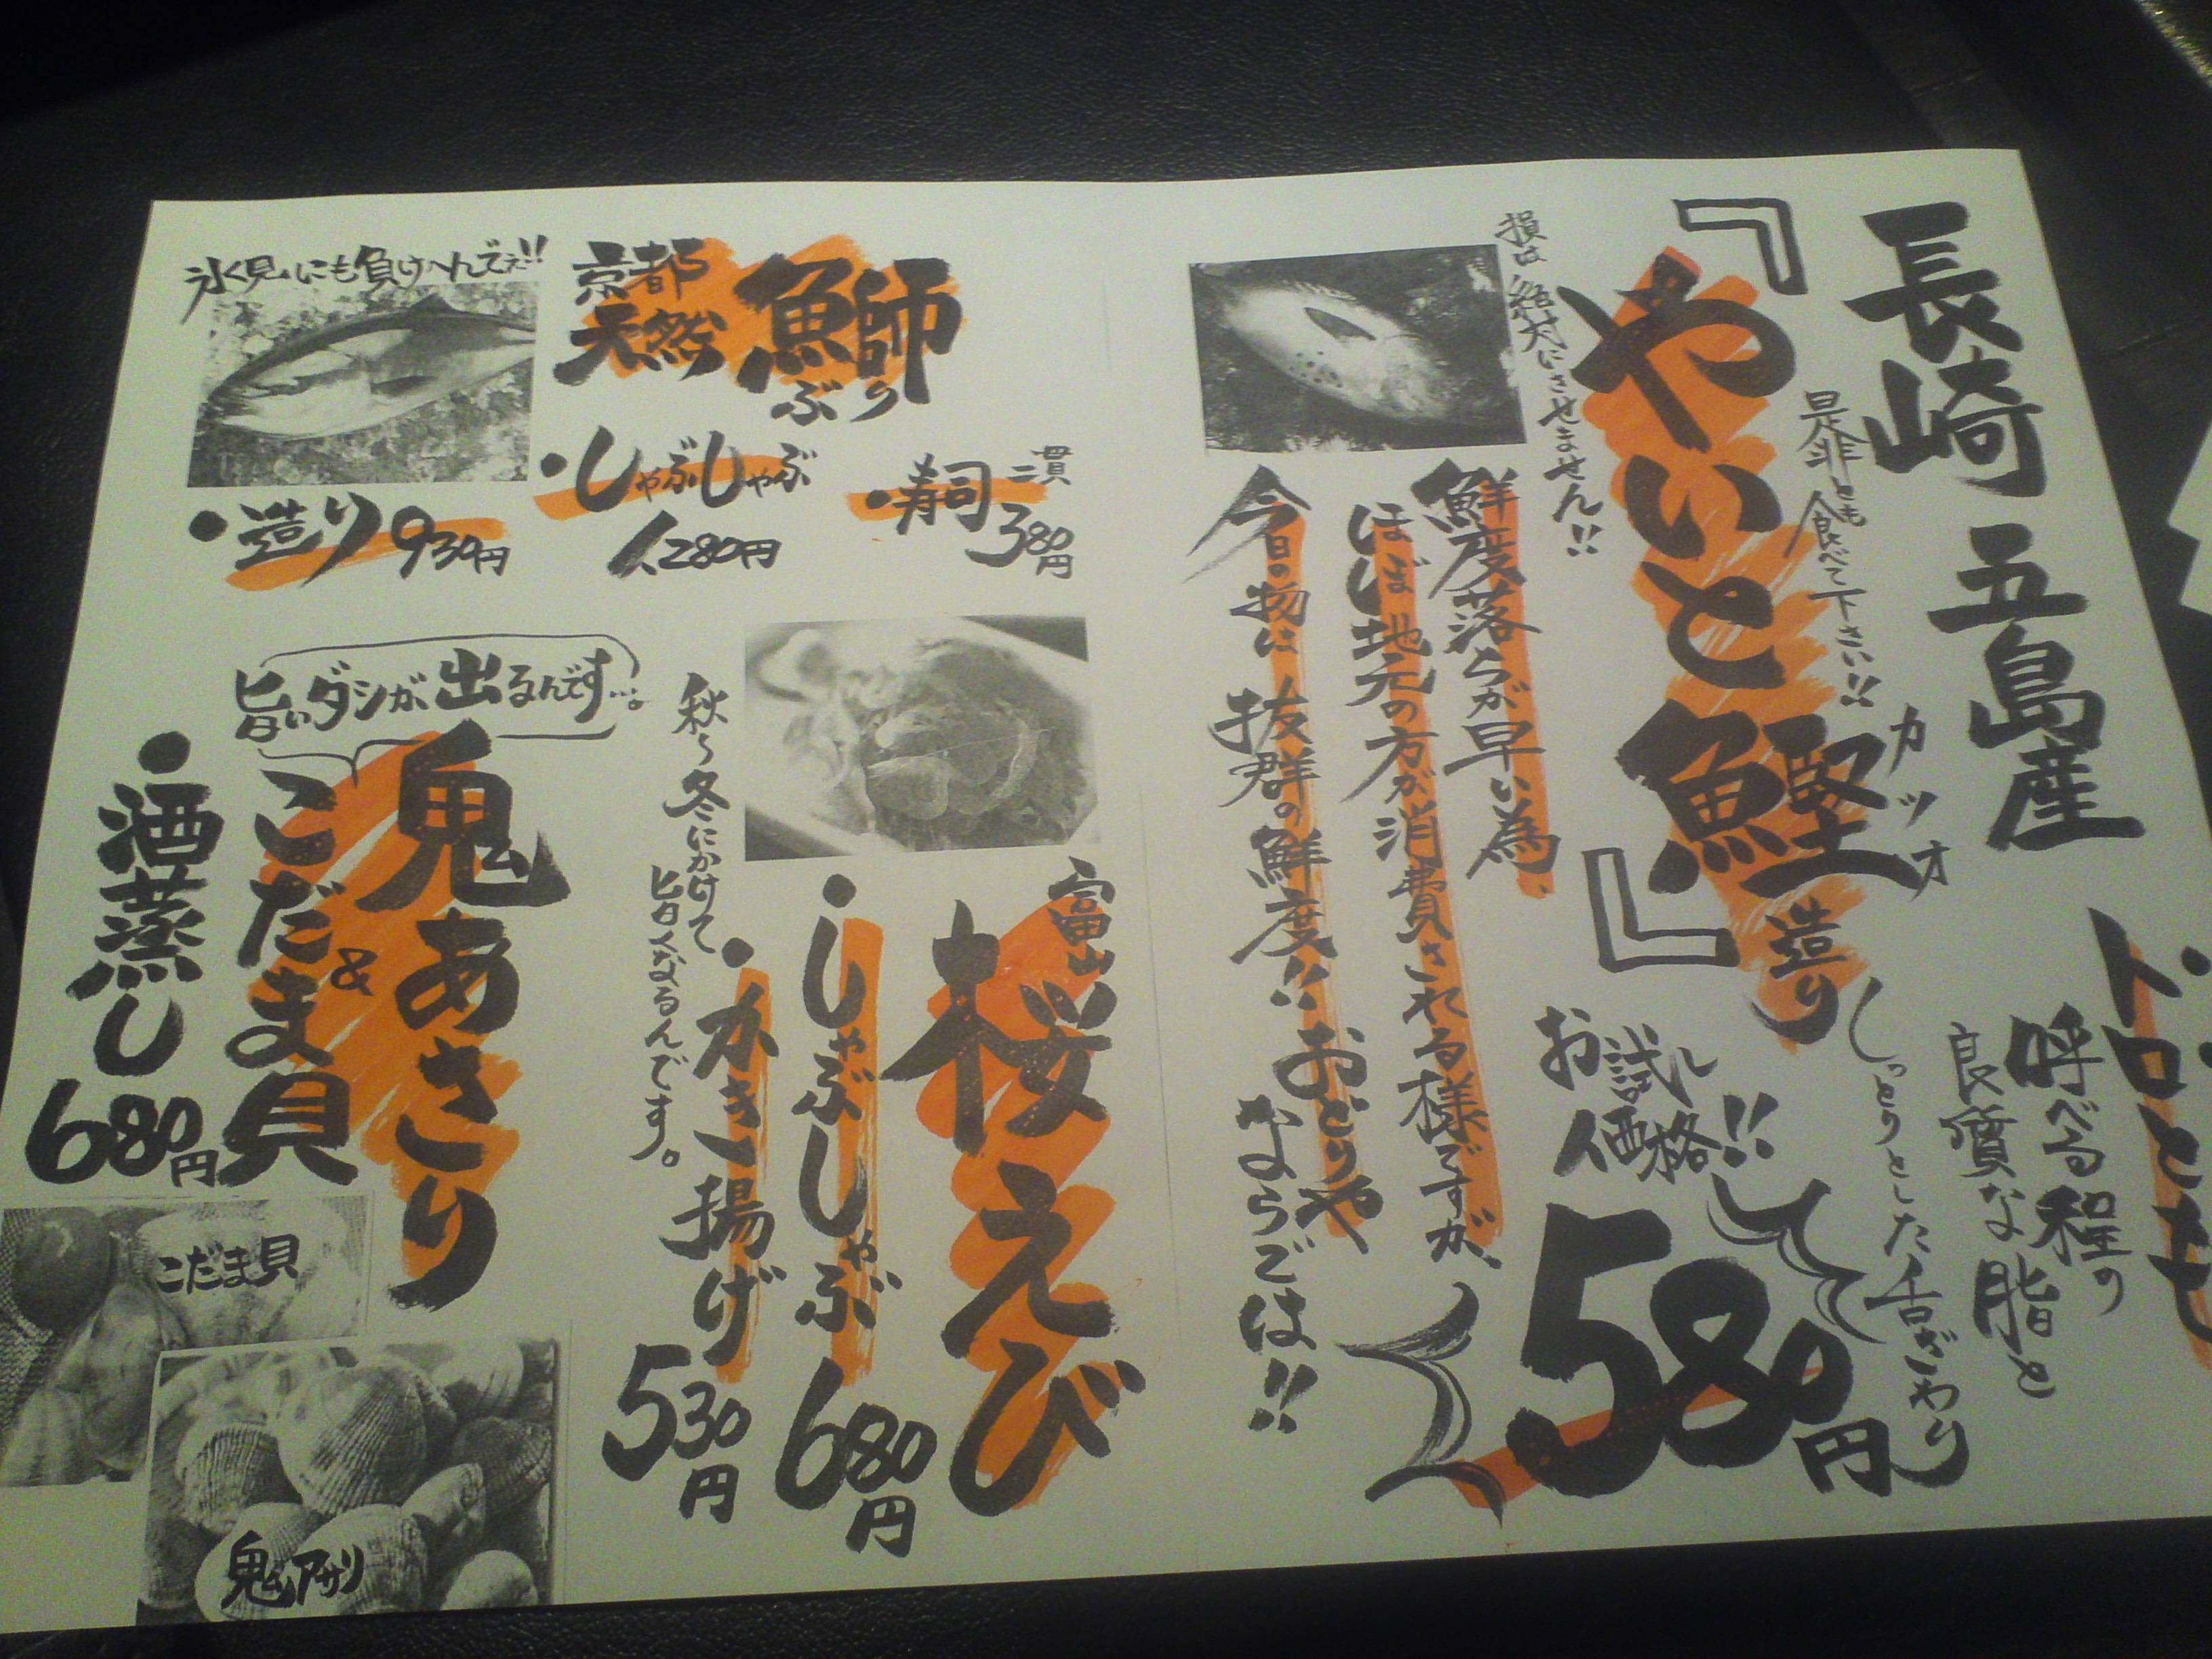 長崎五島産
トロとも
呼べる程の
良質な脂と
しっとりとした舌ざわり
是非とも食べて下さい!!
『やいと鰹』造り
カツオ
お試し
価格!!
580円
損は絶対にさせません!!
鮮度落ちが早い為、
ほぼ地元の方が消費される様ですが、
今日の物は抜群の鮮度!!おどりや
ならでは!!
京都
天然
鰤
ぶり
氷見にも負けへんでぇ!!
・造り 930円
・しゃぶしゃぶ
1,280円
・寿司 二貫
380円
富山
桜えび
・しゃぶしゃぶ 680円
・かき揚げ 530円
秋〜冬にかけて
旨くなるんです。
旨いダシが出るんです…。
鬼あさり
&
こだま貝
・酒蒸し 680円
こだま貝
鬼アサリ